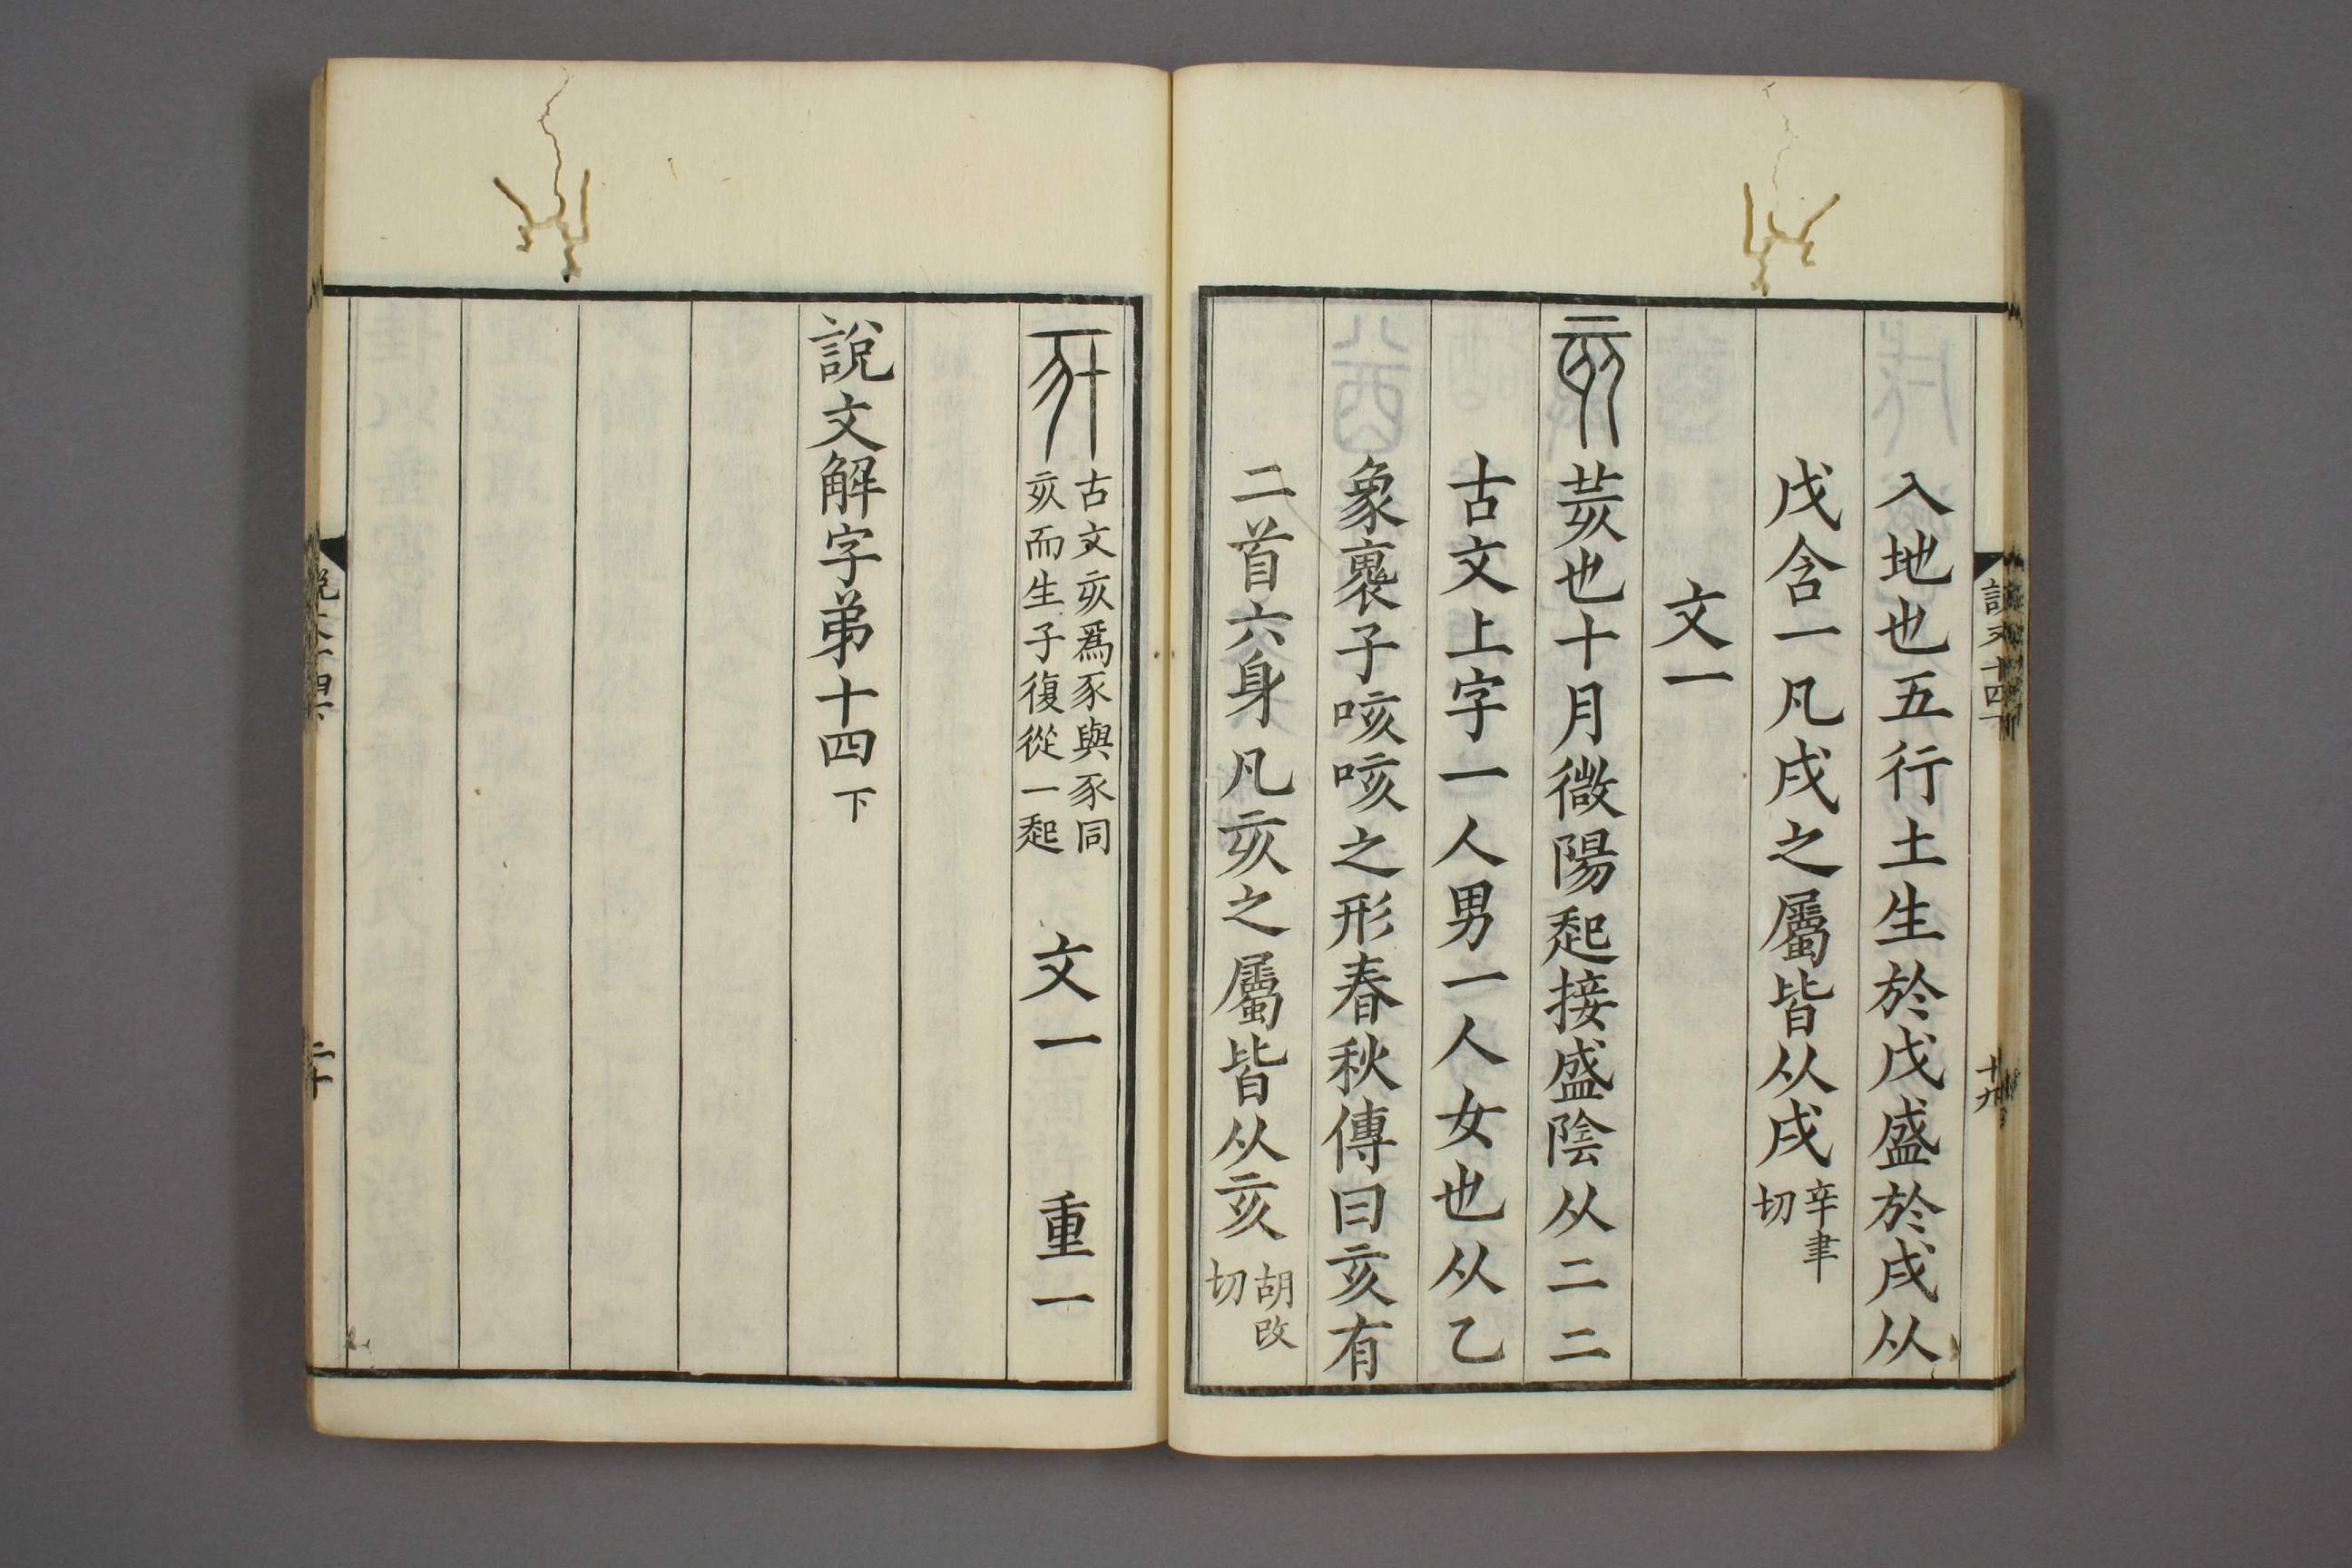 入地也五行土生於戊盛於戌从
戊含一凡戌之屬皆从戌辛聿切
文一
亥荄也十月微陽起接盛陰从二二
古文上字一人男一人女也从乙
象褢子咳咳之形春秋傳曰亥有
二首六身凡亥之屬皆从亥胡改切
古文亥爲豕與豕同
亥而生子復從一起
文一 重一
說文解字弟十四下
十九
二十